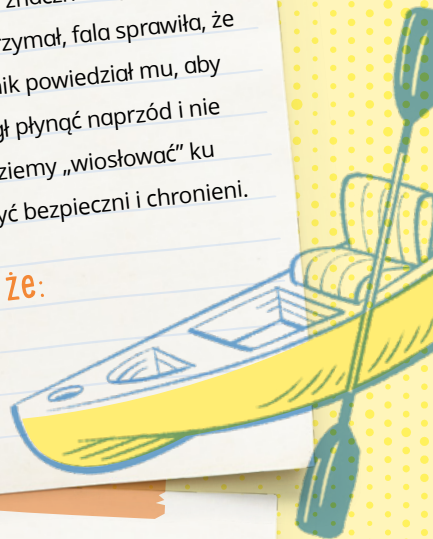 znaczn
rzymał, fala sprawiła, że
nik powiedział mu, aby
gł płynąć naprzód i nie
ziemy „wiosłować” ku
yć bezpieczni i chronieni.
że: